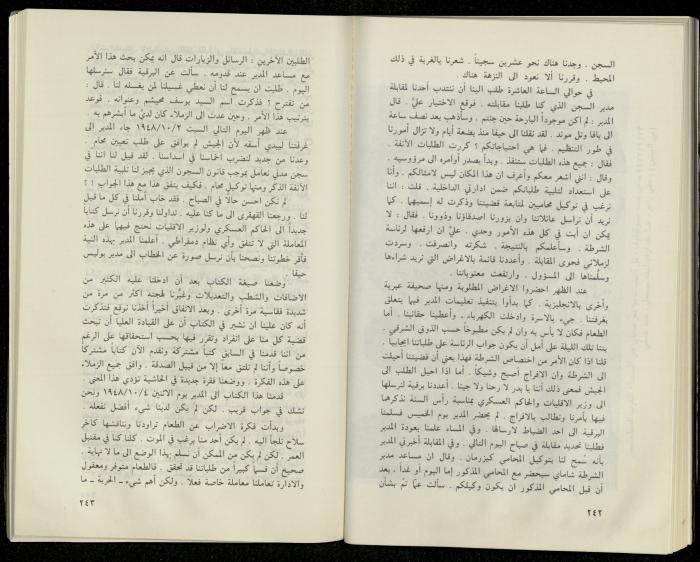 السجن . وجدنا هناك نحو عشرين سجيناً . شعرنا بالغربة في ذلك
المحيط . وقررنا ألا نعود الى النزهة هناك .
في حوالي الساعة العاشرة طلب الينا أن ننتدب أحدنا لمقابلة
مدير السجن الذي كنا طلبنا مقابلته . فوقع الاختيار عليّ . قال
المدير : لم اكن موجوداً البارحة حين جئتم . وسأذهب بعد نصف ساعة
الى يافا وتل موند . لقد نقلنا الى حيفا منذ بضعة أيام ولا تزال أمورنا
في طور التنظيم . فما هي احتياجاتكم ؟ كررت الطلبات الآنفة .
فقال : جميع هذه الطلبات ستنفذ . وبدأ يصدر أوامره الى مرؤوسيه .
وقال : انني اشعر معكم وأعرف ان هذا المكان ليس لامثالكم . وأنا
على استعداد لتلبية طلباتكم ضمن ادارتي الداخلية . قلت : اننا
نرغب في توكيل محاميين لمتابعة قضيتنا وذكرت له إسميهما . كما
نريد أن نراسل عائلاتنا وان يزورنا اصدقاؤنا وذوونا . فقال : لا
يمكن ان أبت في كل هذه الأمور وحدي . عليّ ان ارفعها لرئاسة
الشرطة . وسأعلمكم بالنتيجة . شكرته وانصرفت . وسردت
لزملائي فحوى المقابلة . وأعددنا قائمة بالاغراض التي نريد شراءها
وسلّمناها الى المسؤول . وارتفعت معنوياتنا .
عند الظهر احضروا الاغراض المطلوبة ومنها صحيفة عبرية
وأخرى بالانجليزية . كما بدأوا بتنفيذ تعليمات المدير فيما يتعلق
بغرفتنا . جيء بالاسرة وادخلت الكهرباء . وأعطينا حقائبنا . أما
الطعام فكان لا بأس به وان لم يكن مطبوخاً حسب الذوق الشرقي .
بتنا تلك الليلة على أمل أن يكون جواب الرئاسة على طلباتنا ايجابيا .
قلنا اذا كان الأمر من اختصاص الشرطة فهذا يعني أن قضيتنا أحيلت
الى الشرطة وان الافراج أصبح وشيكاً . أما اذا احيل الطلب الى
الجيش فمعنى ذلك أننا يا بدر لا رحنا ولا جينا . أعددنا برقية لنرسلها
الى وزير الاقليات والحاكم العسكري بمناسبة رأس السنة نذكرهما
فيها بأمرنا ونطالب بالافراج . لم يحضر المدير يوم الخميس فسلمنا
البرقية الى احد الضباط لارسالها . وفي المساء علمنا بعودة المدير
فطلبنا تحديد مقابلة في صباح اليوم التالي . وفي المقابلة أخبرني المدير
بأنه سُمح لنا بتوكيل المحامي كيزرمان . وقال ان مساعد مدير
الشرطة شاماي سيحضر مع المحامي المذكور إما اليوم أو غداً ، بعد
أن قبل المحامي المذكور ان يكون وكيلكم . سألت عمّا تمّ بشأن
٢٤٢
الطلبين الآخرين : الرسائل والزيارات قال انه يمكن بحث هذا الأمر
مع مساعد المدير عند قدومه . سألت عن البرقية فقال سنرسلها
اليوم . طلبت ان يسمح لنا أن نعطي غسيلنا لمن يغسله لنا . قال :
من تقترح ؟ فذكرت اسم السيد يوسف محيشم وعنوانه . فوعد
بترتيب هذا الأمر . وحين عدت الى الزملاء كان لديّ ما أبشرهم به .
عند ظهر اليوم التالي السبت ١٩٤٨/١٠/٢ جاء المدير الى
غرفتنا ليبدي أسفه لأن الجيش لم يوافق على طلب تعيين محام .
وعدنا من جديد لنضرب أخماسنا في أسداسنا . لقد قيل لنا اننا في
سجن مدني نعامل بموجب قانون السجون الذي يجيز لنا تلبية الطلبات
الآنفة الذكر ومنها توكيل محام . فكيف يتفق هذا مع هذا الجواب ! !
لم نكن احسن حالا في الصباح . فقد خاب أملنا في كل ما قيل
لنا . ورجعنا القهقرى الى ما كنا عليه . تداولنا وقررنا أن نرسل كتاباً
جديداً الى الحاكم العسكري ولوزير الاقليات نحتج فيهما على هذه
المعاملة التي لا تتفق وأي نظام دمقراطي . أعلمنا المدير بهذه النية
فأقر خطوتنا ونصحنا بأن نرسل صورة عن الخطاب الى مدير بوليس
حيفا .
وضعنا صيغة الكتاب بعد أن ادخلنا عليه الكثير من
الاضافات والشطب والتعديلات وغيّرنا لهجته اكثر من مرة من
شديدة فقاسية مرة أخرى . وبعد الاتفاق أخيراً أخذنا نوقع فتذكرت
أنه كان علينا ان نشير في الكتاب أن على القيادة العليا أن تبحث
قضية كل منا على انفراد وتقرر فيها بحسب استحقاقها على الرغم
من اننا قدمنا في السابق كتباً مشتركة ونقدم الآن كتاباً مشتركاً
خصوصاً وأننا لم نلتق معاً إلا من قبيل الصدفة . وافق جميع الزملاء
على هذه الفكرة . ووضعنا فقرة جديدة في الحاشية تؤدي هذا المعنى .
قدمنا هذا الكتاب الى المدير يوم الاثنين ١٩٤٨/١٠/٤ ونحن
نشك في جواب قريب . لكن لم يكن لدينا شيء أفضل نفعله .
وبدأت فكرة الاضراب عن الطعام تراودنا ونناقشها كآخر
سلاح نلجأ اليه . لم يكن أحد منا يرغب في الموت . كلنا كنا في مقتبل
العمر . لكن لم يكن من الممكن أن نسلم بهذا الوضع الى ما لا نهاية .
صحيح أن قسماً كبيراً من طلباتنا قد تحقق . فالطعام متوفر ومعقول
والادارة تعاملنا معاملة خاصة فعلا . ولكن أهم شيء ــ الحرية ــ ما
٢٤٣